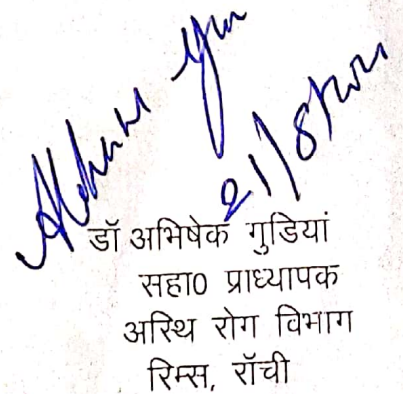 21/8/
डॉ अभिषेक गुडियां
सहा0 प्राध्यापक
अस्थि रोग विभाग
रिम्स, रॉची